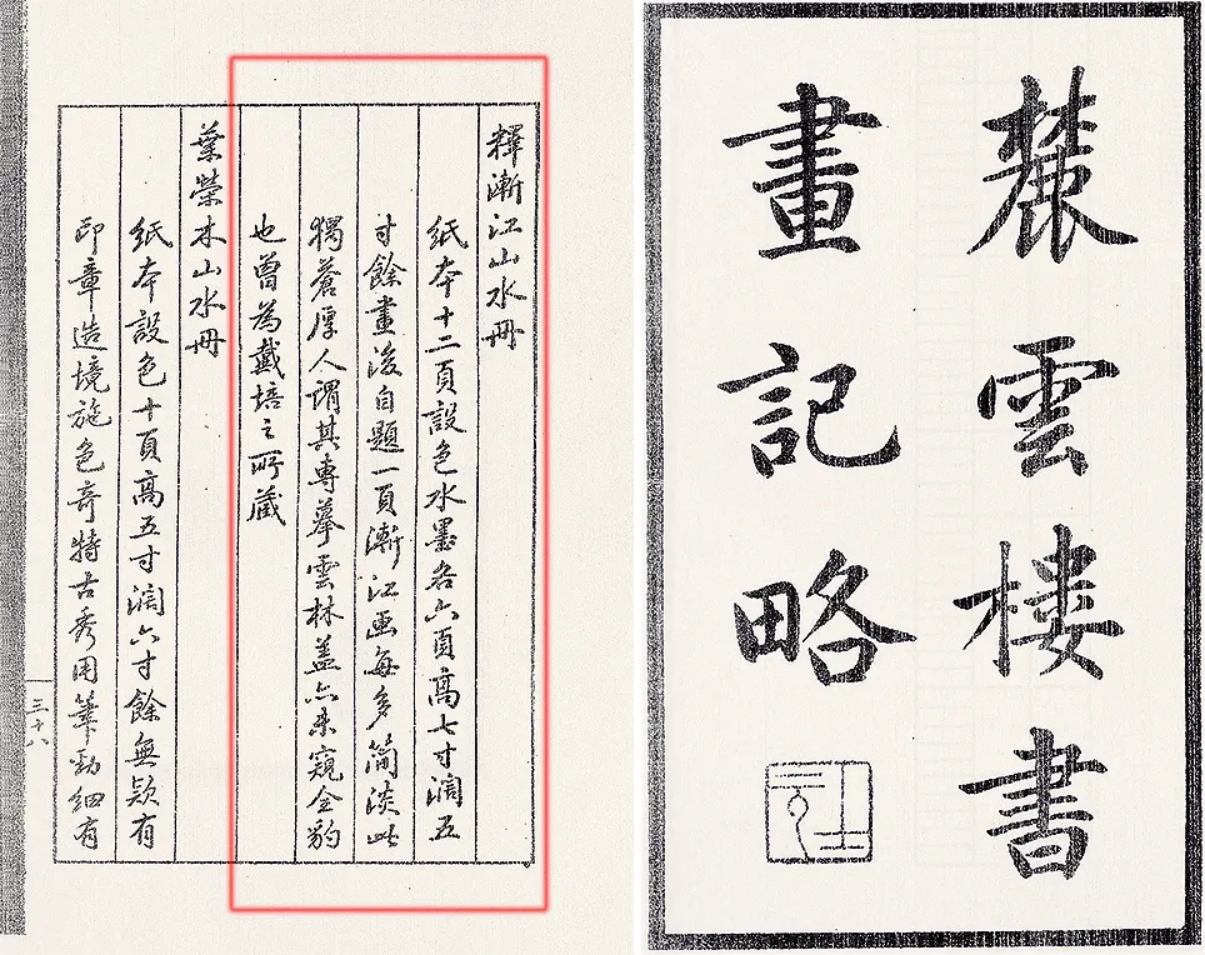 麓雲樓書
畫記略
釋漸江山水冊
紙本十二頁設色水墨各六頁高七寸濶五
寸餘畫後自題一頁漸江画每多簡淡此
獨蒼厚人謂其專摹雲林盖亦未窺全豹
也曾為戴培之所藏
葉榮木山水冊
紙本設色十頁高五寸濶六寸餘無欵有
印章造境施色奇特古秀用筆勁細有
三十八